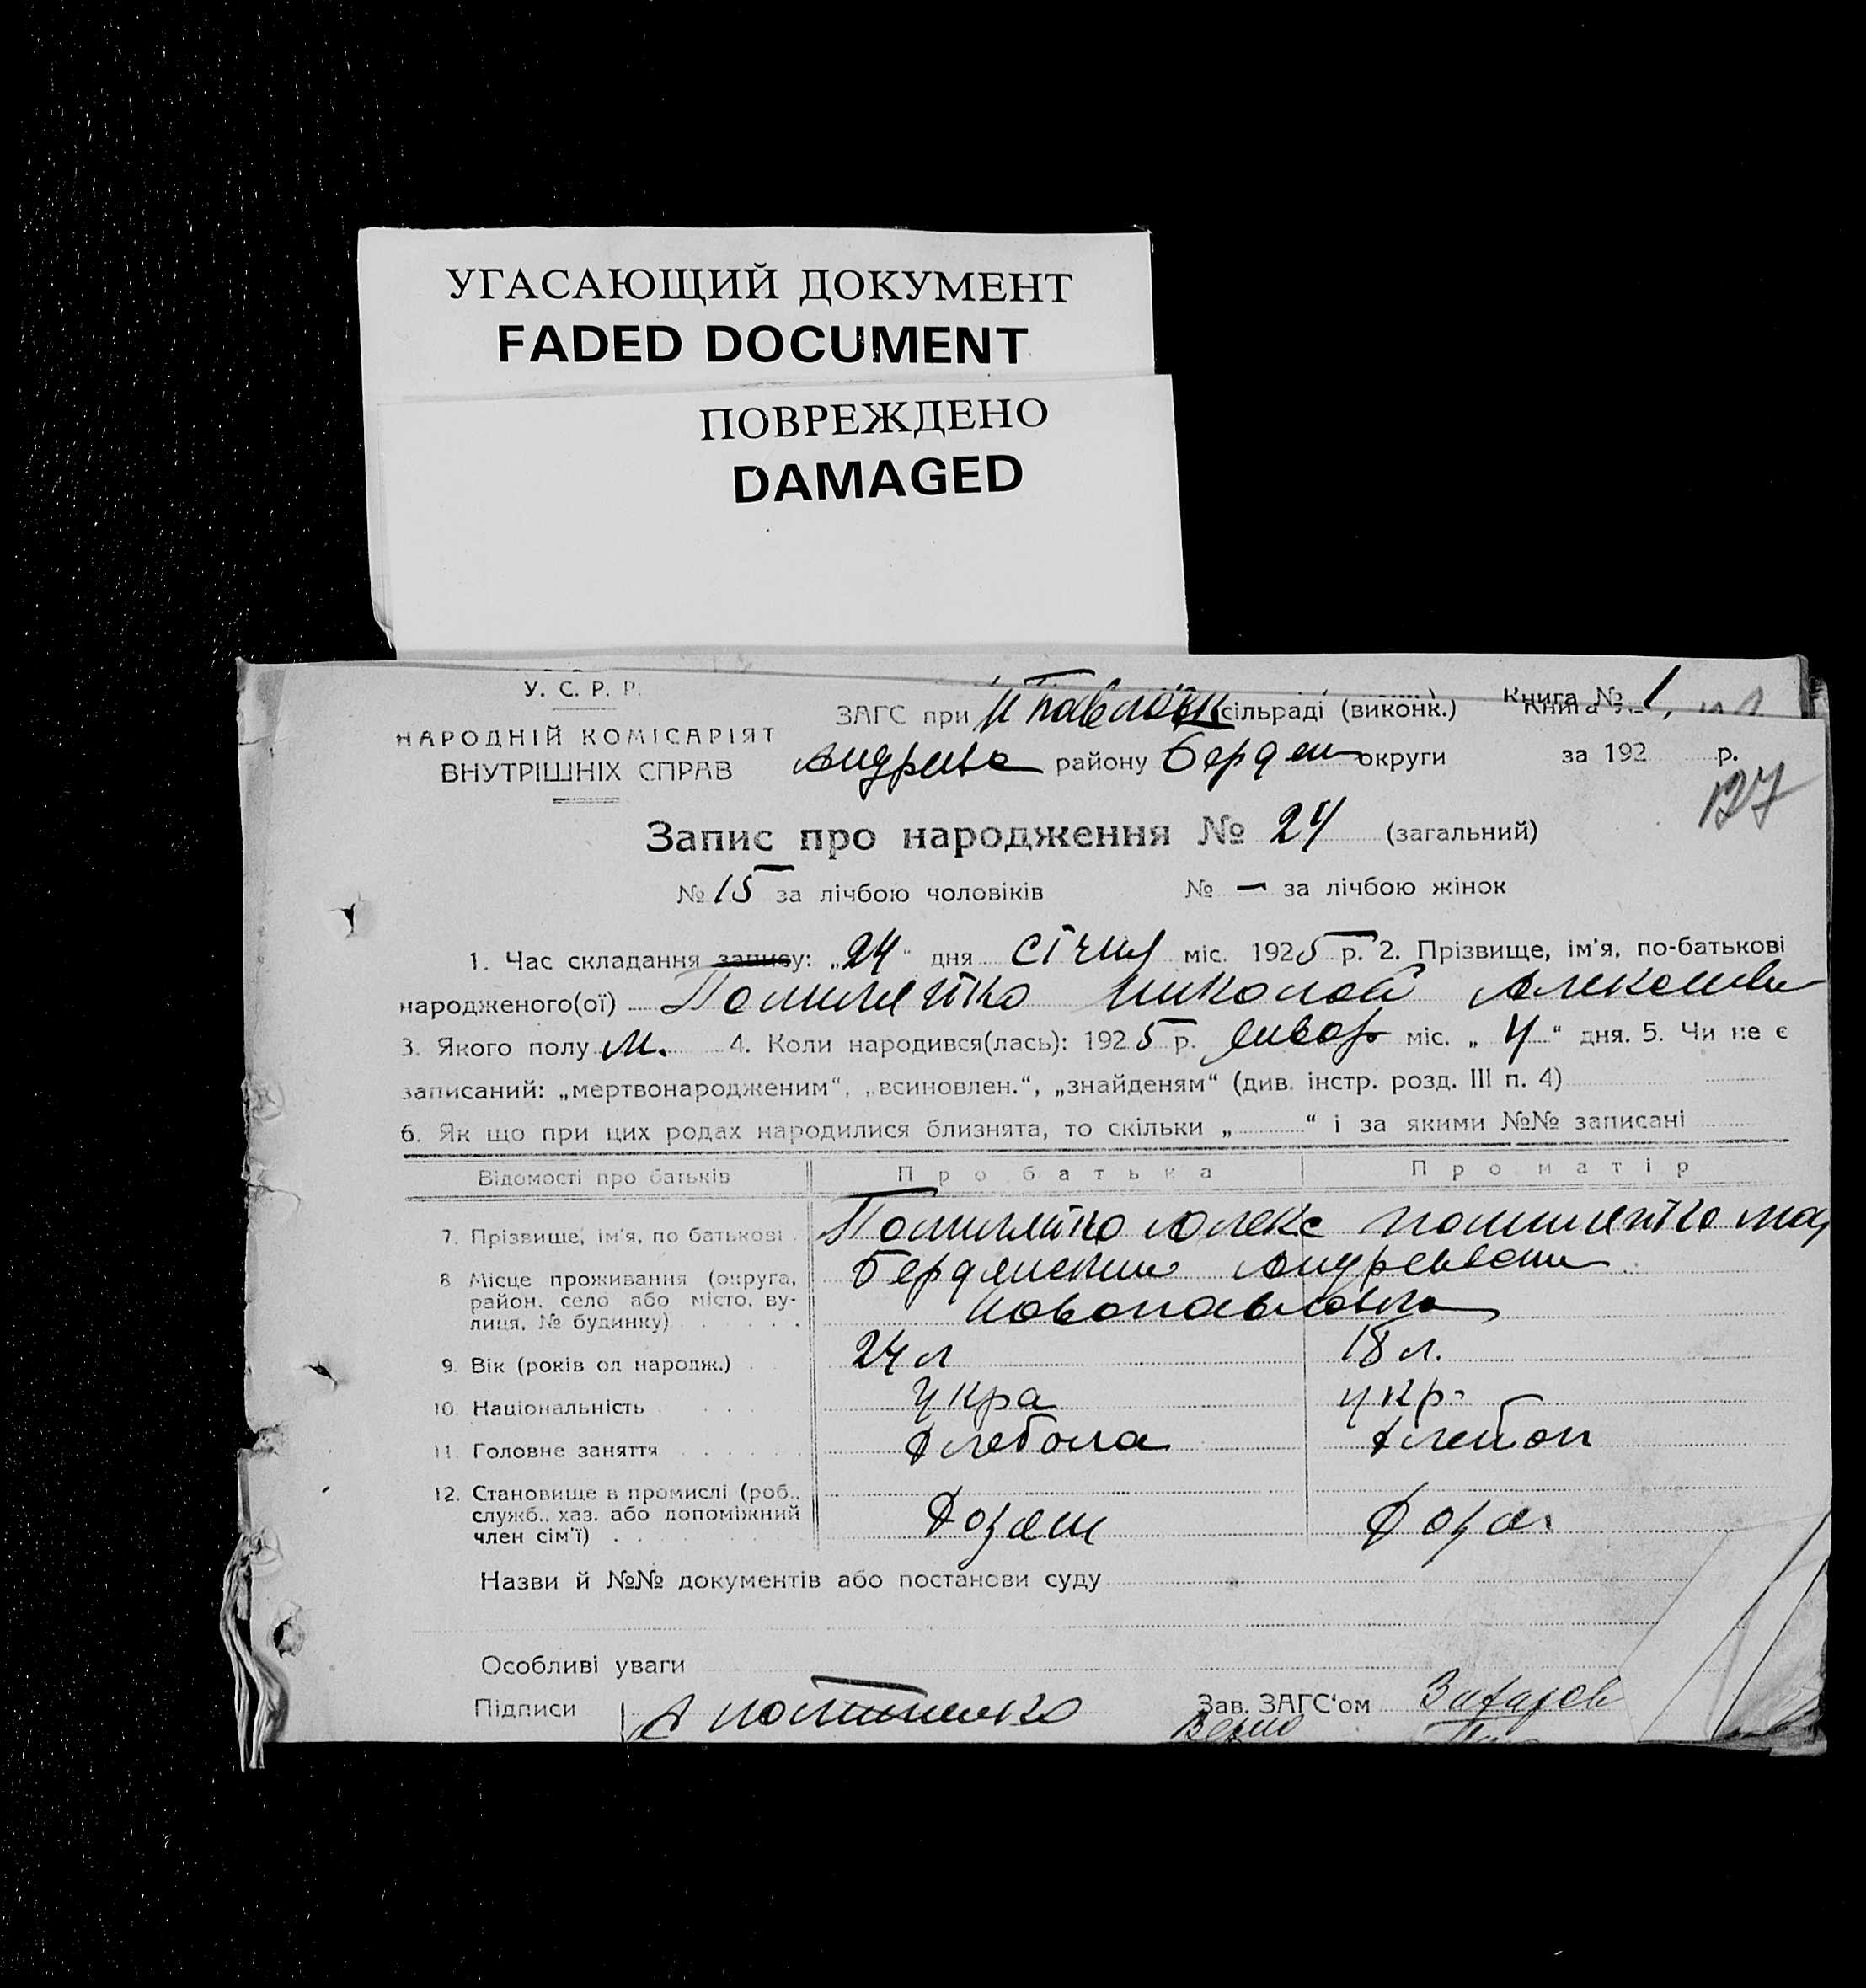 УГАСАЮЩИЙ ДОКУМЕНТ
FADED DOCUMENT
ПОВРЕЖДЕНО
DAMAGED
У. С. Р. Р.
НАРОДНІЙ КОМІСАРІЯТ
ВНУТРІШНІХ СПРАВ
ЗАГС при сільраді (виконк.)
району Бердян округи
Книга № 1
за 192 р.
127
Запис про народження № 24 (загальний)
№ 15 за лічбою чоловіків № — за лічбою жінок
1. Час складання запису: „24“ дня січня міс. 1925 р. 2. Прізвище, ім'я, по-батькові
народженого(ої) Николай
3. Якого полу м. 4. Коли народився(лась): 1925 р. январ міс. „4“ дня. 5. Чи не є
записаний: „мертвонародженим“, „всиновлен.“, „знайденям“ (див. інстр. розд. III п. 4)
6. Як що при цих родах народилися близнята, то скільки „ “ і за якими №№ записані
Відомості про батьків Про батька Про матір
7. Прізвище, ім'я, по батькові
8 Місце проживання (округа,
район, село або місто, ву-
лиця, № будинку)
новопавловка
9. Вік (років од народж.) 24 л 18 л.
10. Національність укра укр.
11. Головне заняття хлебопа хлебоп
12. Становище в промислі (роб.,
служб., хаз. або допоміжний
член сім'ї) хозяин
Назви й №№ документів або постанови суду
Особливі уваги
Підписи Зав. ЗАГС'ом Захаров
Верно